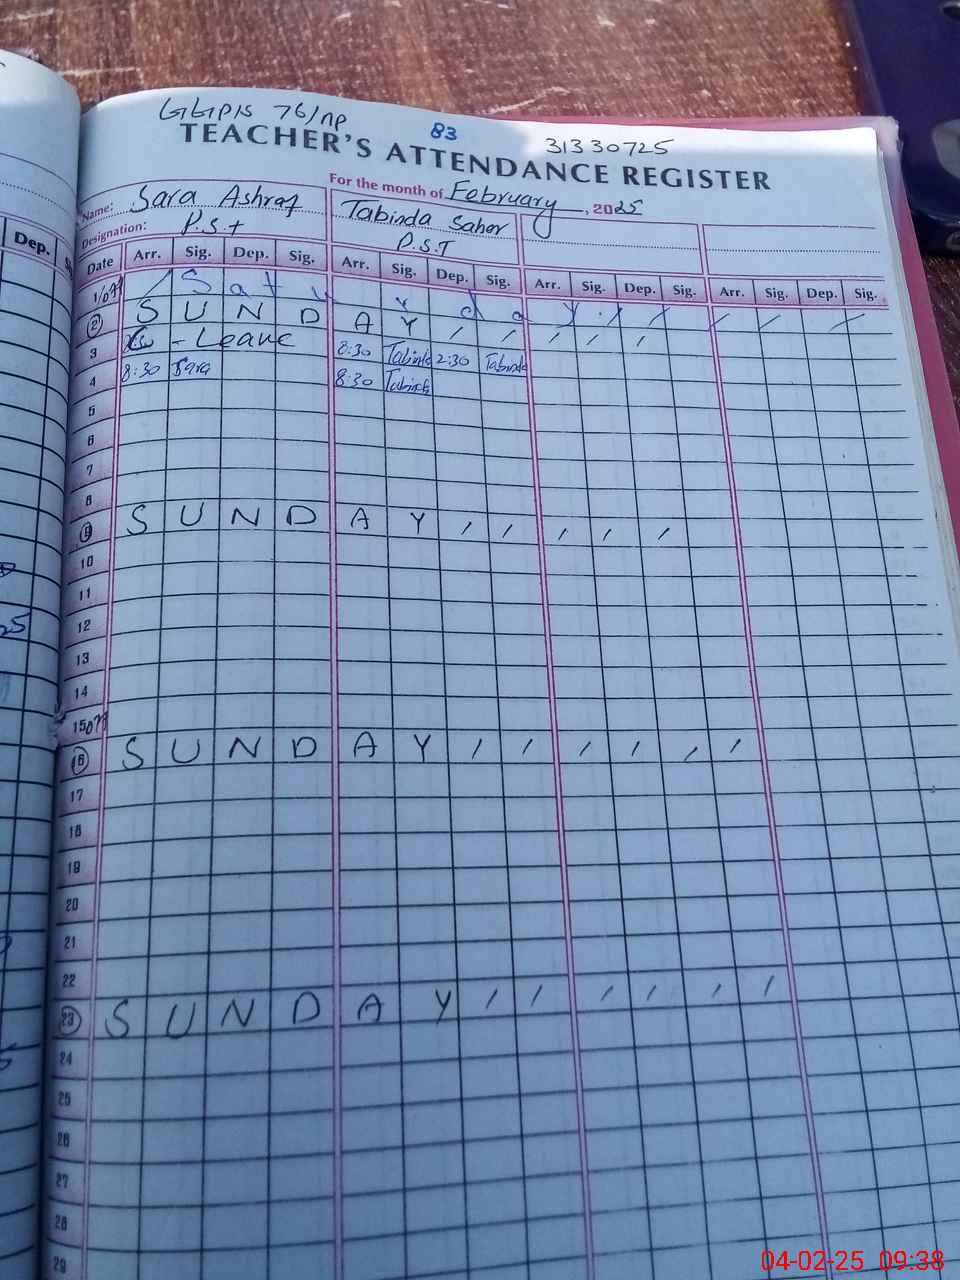 GGPS 76/NP 83 31330725
TEACHER'S ATTENDANCE REGISTER
For the month of February, 2025
Name: Sara Ashraf Tabinda Saher
Designation: P.S.t P.S.T
Date Arr. Sig. Dep. Sig. Arr. Sig. Dep. Sig. Arr. Sig. Dep. Sig. Arr. Sig. Dep. Sig.
Dep.
1 S a t u r d a y
2 S U N D A Y
3 - Leave 8:30 Tabinda 2:30 Tabinda
4 8:30 Sara 8:30 Tabinda
5
6
7
8
9 S U N D A Y
10
11
12
13
14
15
16 S U N D A Y
17
18
19
20
21
22
23 S U N D A Y
24
25
26
27
28
29
04-02-25 09:38